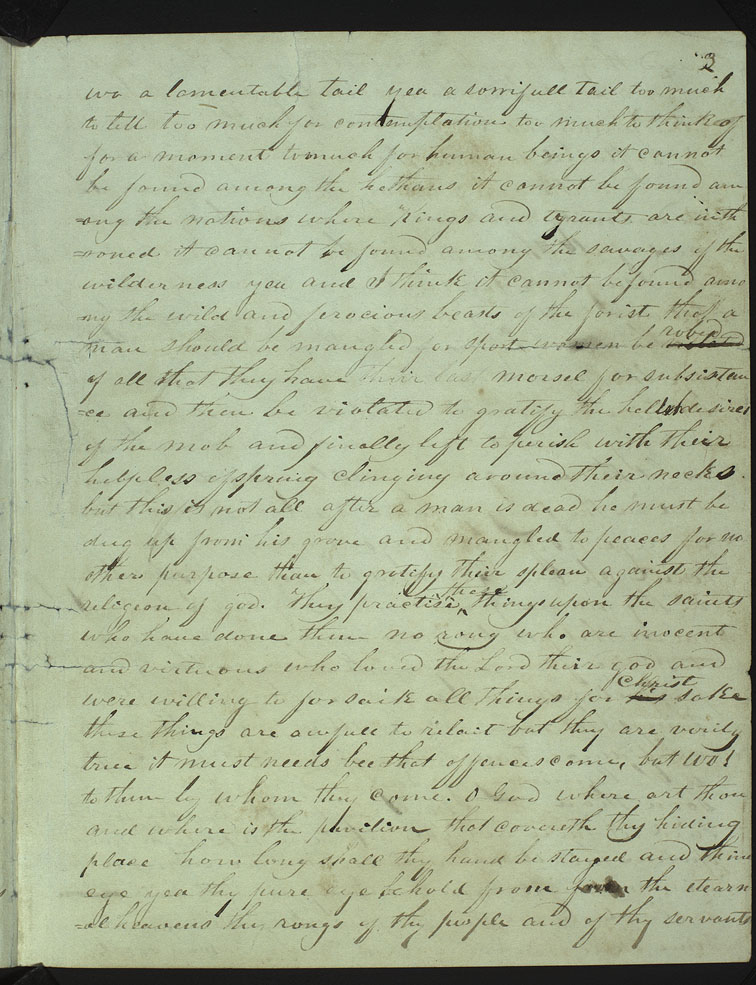 3
wo a lamentable tail yea a sorrifull tail too much
to tell too much for contemplation too much to think of
for a moment to much for human beings it cannot
be found among the hethans it cannot be found am
=ong the nations where Kings and tyrants are inth
=roned it cannot be found among the savages of the
wilderness yea and I think it cannot be found amo
ng the wild and ferocious beasts of the forist that a
man should be mangled for sport women be robed
of all that they have their last morsel for subsistan
=ce and then be violated to gratify the hellish desires
of the mob and finally left to perish with their
helpless ofspring clinging around their necks
but this is not all after a man is dead he must be
dug up from his grave and mangled to peaces for no
other purpose than to gratify their splean against the
religion of god. They practise these things upon the saints
who have done them no rong who are inocent
and virtuous who loved the Lord their god and
were willing to forsaik all things for Christ his sake
these things are awfull to relait but they are verily
true it must needs bee that offences come, but wo!
to them by whom they come. O God where art thou
and where is the pavilion that covereth thy hiding
place how long shall thy hand be stayed and thine
eye yea thy pure eye behold from from the etearn
=al heavens the rongs of thy people and of thy servants